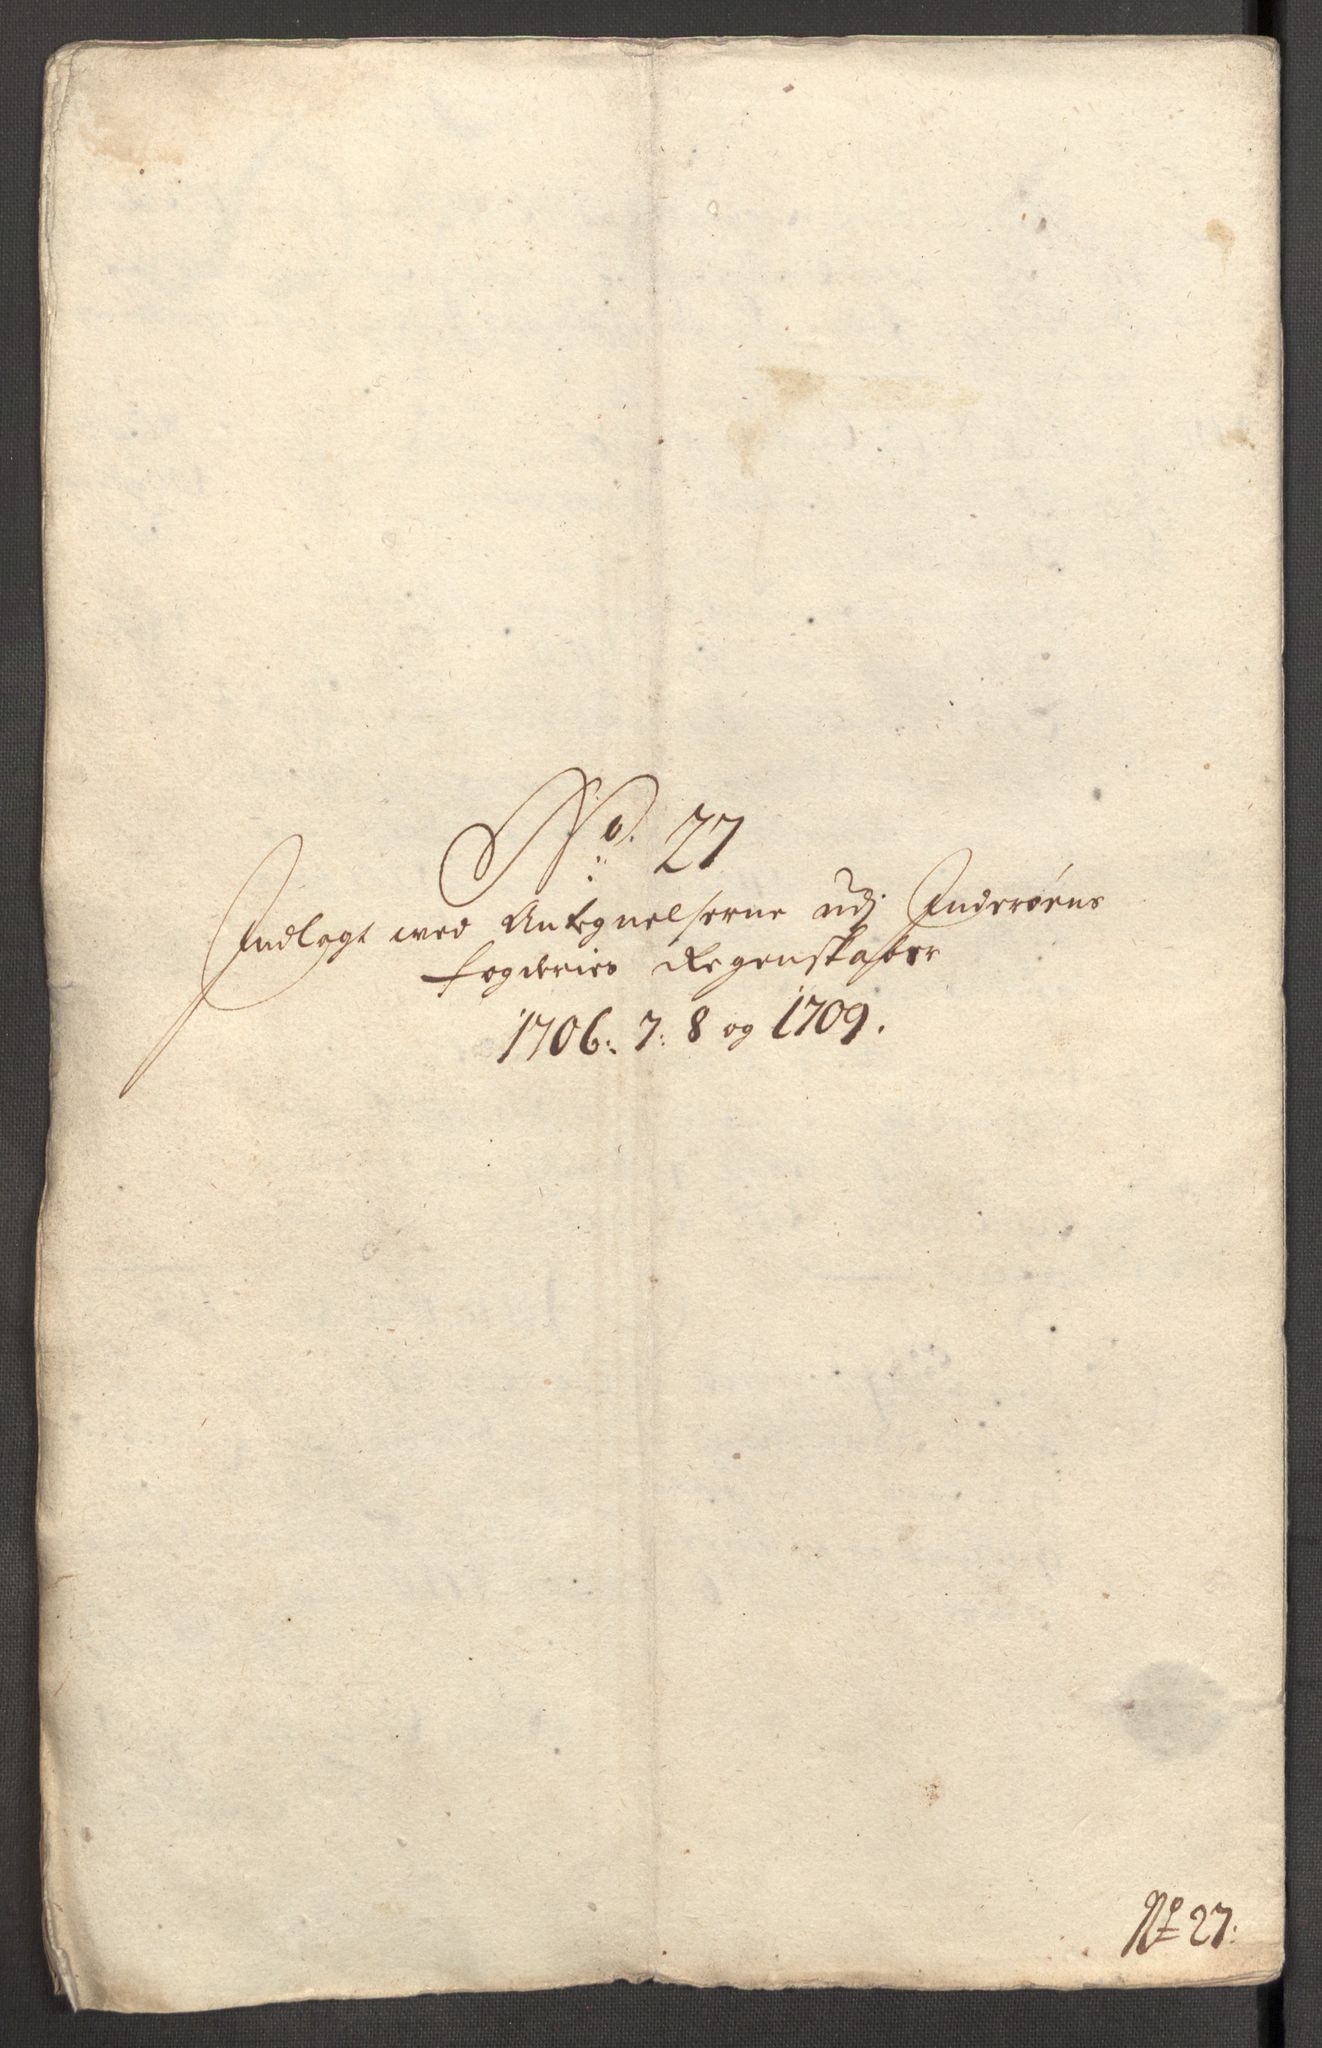 No. 27
Indlagt wed Antegnelserne udj Inderøens
fogderies Regenskaber
1706: 7: 8 og 1709.
No 27: